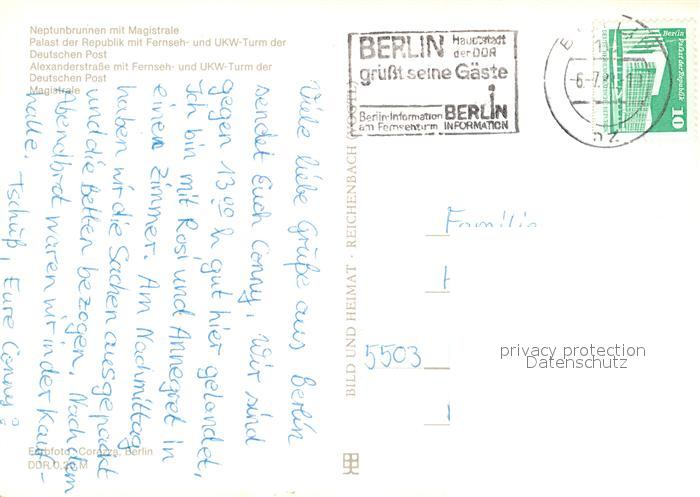 Neptunbrunnen mit Magistrale
Palast der Republik mit Fernseh- und UKW-Turm der
Deutschen Post
Alexanderstraße mit Fernseh- und UKW-Turm der
Deutschen Post
Magistrale
Viele liebe Grüße aus Berlin
sendet Euch Conny. Wir sind
gegen 13.00 h gut hier gelandet.
Ich bin mit Rosi und Annegret in
einem Zimmer. Am Nachmittag
haben wir die Sachen ausgepackt
und die Betten bezogen. Nach dem
Abendbrot waren wir in der Kauf-
halle. Tschüß, Eure Conny
Farbfoto: Corazza, Berlin
DDR 0,20 M
BILD UND HEIMAT · REICHENBACH
BERLIN Hauptstadt
der DDR
grüßt seine Gäste
i
Berlin-Information BERLIN
am Fernsehturm INFORMATION
Berlin
Palast der Republik
10
Familie
5503
privacy protection
Datenschutz